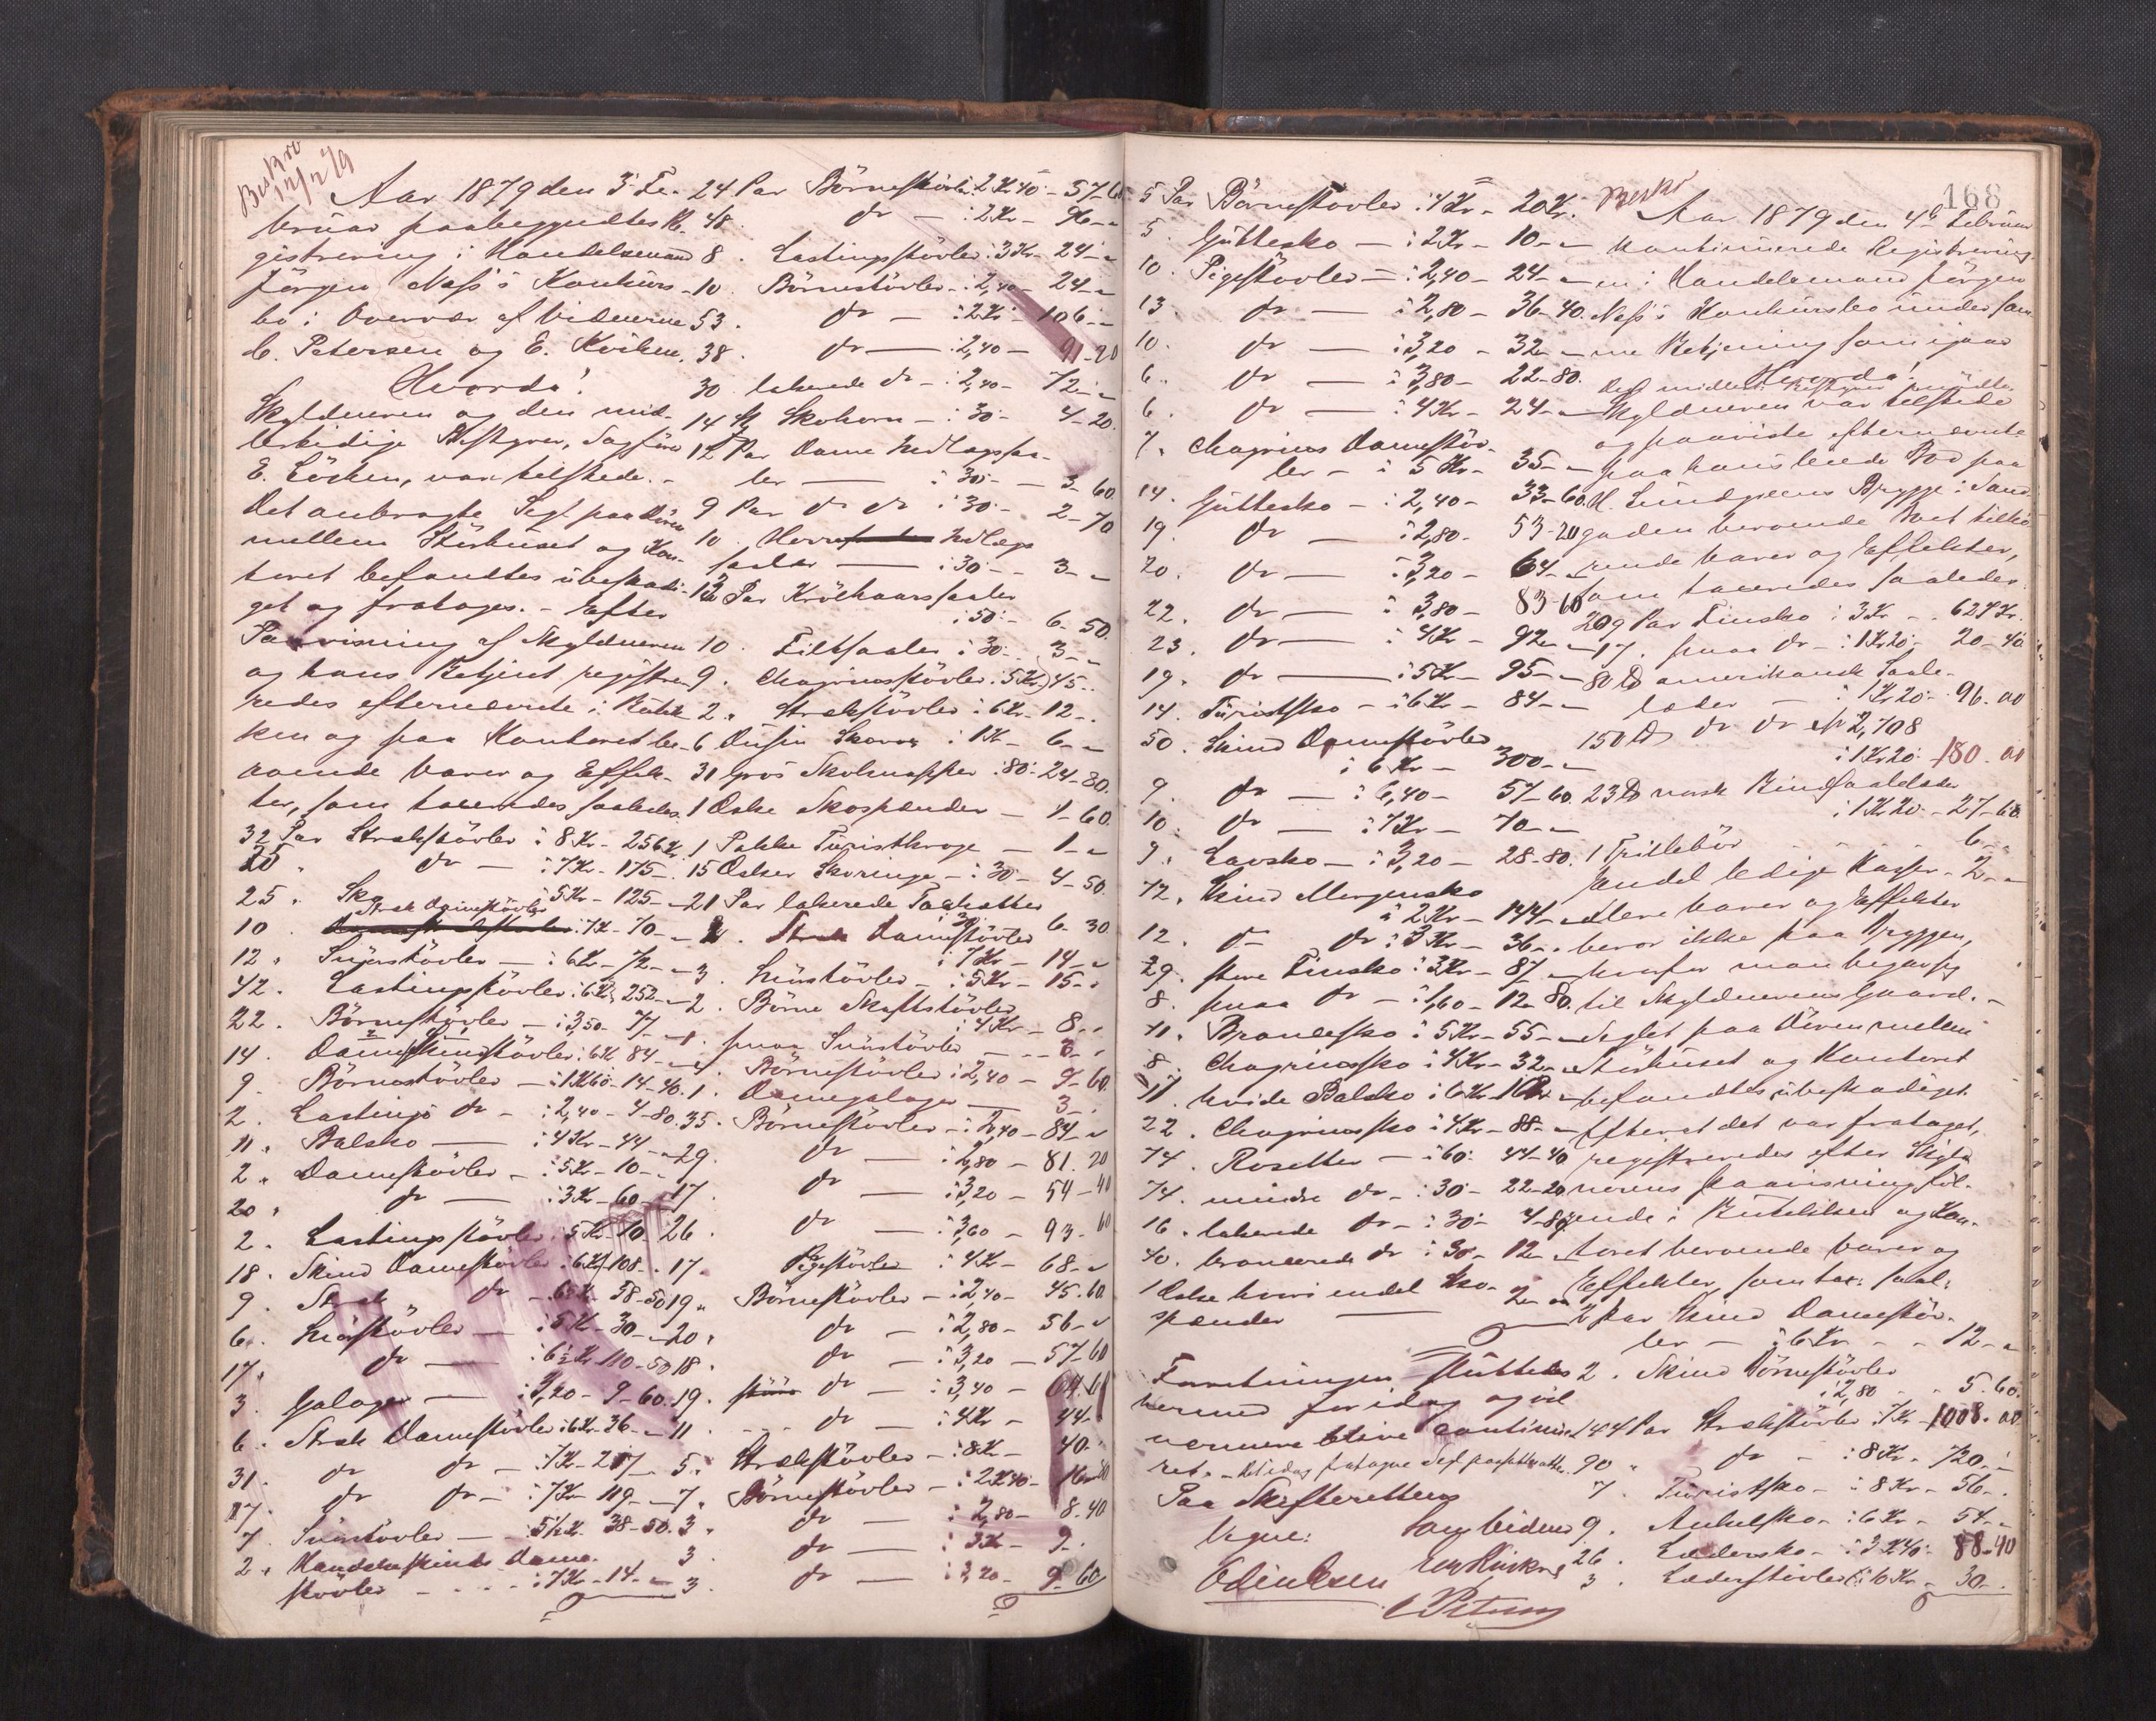 Beskr
12/2 79
Aar 1879 den 3' Fe-
bruar paabegyndtes Re-
gistrering i Handelsmand
Jörgen Næss's Konkurs-
bo i Overvær af Vidnerne
C. Petersen og E.
Hvorda!
Skyldneren og den mid-
lertidige Bestyrer, Sagförer
E. Löchen, var tilstede. -
Det anbragte Segl paa Dören
mellem Störhuset og Kon-
toret befandtes ubeskadi-
get og fratoges. - Efter
Paavisning af Skyldneren
og hans Betjent registre-
redes efternævnte i Butik-
ken og paa Kontoret be-
roende Varer og Effek-
ter, som taxeredes saaledes.
32 Par Strækstövler i 8 Kr - 256 Kr
dr - i 7 Kr - 175 -
25 " Sko i 5 Kr - 125 - "
10 . Stræk Damestövler i 7 Kr - 70 - "
12 " Snörstövler - i 6 Kr - 72 - "
42 . Lastingstövler i 6 Kr 252 - "
22 . Börnestövler - i 3,50 - 77 -
14 . Dameskindstövler i 6 Kr 84 -
9 . Börnestövler - i 1 Kr 60 - 14 - 40.
2 . Lastings dr - i 2,40 - 4 - 80.
11 " Balsko - i 4 Kr - 44 - "
2 " Damestövler - i 5 Kr - 10 - "
20 " dr - i 3 Kr - 60 - "
2 . Lastingstövler i 5 Kr - 10 -
18 . Skind Damestövler i 6 Kr 108 - "
9 . Stræk dr - 6½ Kr 58 - 50
6 . Snörstövler - i 5 Kr - 30 - "
17 " dr - i 6½ Kr 110 - 50
3 . Galoger - i 3,20 - 9 - 60.
6 . Stræk Damestövler i 6 Kr - 36 - "
31 . dr dr - i 7 Kr - 217 -
17 . dr dr - i 7 Kr - 119 - "
7 . Snörstövler - 5½ Kr 38 - 50.
2 " Handskeskinds Dame-
stövler - - - i 7 Kr - 14 - "
24 Par Börnestövler i 2 Kr 40 - 57 - 60
48 . dr - i 2 Kr - 96 - "
8 . Lastingstövler i 3 Kr - 24 - "
10 . Börnestövler - i 2,40 - 24 - "
53 . dr - i 2 Kr - 106 - "
38 . dr - i 2,40 - 91 - 20
30 lakerede dr - i 2,40 - 72 - "
14 St Skohorn - i 30 - 4 - 20.
12 Par Dame Indlægssaa-
ler - i 30 - - 3 - 60.
9 Par dr dr i 30 - 2 - 70
10 . Herre Indlægs
saaler - i 30 - - 3 - "
13 Par Krölhaarssaaler
i 50 - 6 - 50.
10 . Filtsaaler i 30 - 3 - "
9 . Chagrinsstövler . 5 Kr 45 - .
2 " Strækstövler i 6 Kr - 12 - .
6 Dusin i 1 Kr - 6 - "
31 Gros Skoknapper i 80 - 24 - 80.
1 Æske Skospænder - 1 - 60.
1 Pakke Turistkroge - 1 - "
15 Æsker Skoringe - i 30 - 4 - 50
21 Par lakerede
i 30 - 6 - 30
2 . Damestövler
i 7 Kr - 14 - "
3 . Snörstövler - i 5 Kr - 15 - .
2 . Börne Skaftstövler
i 4 Kr - 8 - .
1 . smaa Snörstövler - - - 3 - .
4 . Börnestövler i 2,40 - 9 - 60.
1 . Damegaloger - 3 - .
35 . Börnestövler - i 2,40 - 84 - "
29 . dr - i 2,80 - 81 . 20
17 . dr - i 3,20 - 54 - 40
26 . dr - i 3,60 - 93 - 60
17 . Pigestövler i 4 Kr - 68 - "
19 " Börnestövler - i 2,40 - 45 . 60.
20 " dr - i 2,80 - 56 - "
18 . dr - i 3,20 - 57 - 60
19 . dr - i 3,40 - 64 . 60
11 . . . . dr - i 4 Kr - 44 -
5 " Strækstövler - i 8 Kr - 40 - .
7 " Börnestövler - i 2 Kr 40 - 16 - 80
3 " dr - i 2,80 - 8 - 40
3 . dr - i 3 Kr - 9 - .
3 . dr - i 3,20 - 9 - 60
168
5 Par Börnestövler i 4 Kr - 20 Kr.
5 . Guttesko - i 2 Kr - 10 - "
10 . Pigestövler - i 2,40 - 24 - "
13 . dr - i 2,80 - 36 - 40.
10 . dr - i 3,20 - 32 - "
6 " dr - i 3,80 - 22 - 80.
6 . dr - i 4 Kr - 24 - "
7 . Chagrins Damestöv-
ler - i 5 Kr - 35 - "
14 . Guttesko - i 2,40 - 33 - 60.
19 . dr - i 2,80 - 53 - 20
20 . dr - i 3,20 - 64 - "
22 . dr - i 3,80 - 83 - 60
23 . dr - i 4 Kr - 92 - "
19 . dr - i 5 Kr - 95 - "
14 . Turistsko - i 6 Kr - 84 - "
50 . Skind Damestövler
i 6 Kr - 300 - "
9 . dr - i 6,40 - 57 - 60.
10 . dr - i 7 Kr - 70 - "
9 . Lavsko - i 3,20 - 28 - 80.
72 . Skind Morgensko
i 2 Kr - 144 - "
12 . dr dr i 3 Kr - 36 - "
29 . store Finsko i 3 Kr - 87 - "
8 . smaa dr - i 1,60 - 12 - 80.
11 . Brunelsko i 5 Kr - 55 - "
8 . Chagrinssko i 4 Kr - 32 - "
17 . hvide Balsko i 6 Kr - 102 - "
22 . Chagrinssko i 4 Kr - 88 - "
74 . Rosetter - i 60 - 44 - 40
74 . mindre dr - i 30 - 22 - 20
16 . lakerede dr - i 30 - 4 - 80
40 . broncerede dr i 30 - 12 - "
1 Æske hvori endel Sko-
spænder - 2 - "
Forretningen sluttedes
hermed for idag og vil
nærmere blive continue-
ret. -
Paa Skifterettens
Vegne:
Som Vidner
C Petersen
Beskr
Aar 1879 den 4de Februar
kontinuerede Registrering-
en i Handelsmand Jörgen
Næss's Konkursbo under sam-
me Betjening som igaar
Hvorda!
Skyldneren var tilstede
og paaviste efternævnte
paa hans leiede Bod paa
H. Lundgreens Brygge i Sand-
gaden beroende Boet tilhö-
rende Varer og Effekter,
som taxeredes saaledes
209 Par Finsko i 3 Kr - . 627 Kr.
17 . smaa dr - i 1 Kr 20 - 20 - 40.
80 ℔ amerikansk Saale-
læder - i 1 Kr 20 - 96 . 00
150 ℔ dr dr № 2,708
i 1 Kr 20 - 180 . 00
23 ℔ norsk
i 1 Kr 20 - 27 - 60.
1 Trillebör - - - 6 - "
Endel ledige Kasser - 2 - "
Mere Varer og Effekter
beror ikke paa Bryggen,
hvorfor man begav sig
til Skyldnerens Gaard. -
Seglet paa Dören mellem
Störhuset og Kontoret
befandtes ubeskadiget.
Efterat det var frataget,
registreredes efter Skyld-
nerens Paavisning föl-
gende i Butikken og Kon-
toret beroende Varer og
Effekter, som tax: saal:
2 Par Skind Damestöv-
ler - i 6 Kr - - 12 - "
2 . Skind Börnestövler
i 2,80 - - 5 . 60.
144 Par Strækstövler i 7 Kr - 1008 . 00
90 " dr - i 8 Kr - 720 - "
7 . Turistsko - i 8 Kr - 56 - .
9 . Ankelsko - i 6 Kr - 54 - "
26 . Lædersko - i 3 Kr 40 - 88 - 40
3 . Læderstövler i 10 Kr - 30 - .